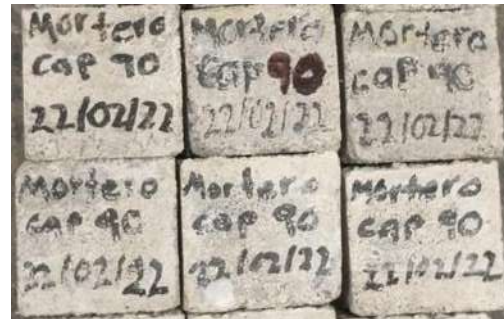 Mortero
cap 90
22/02/22
Mortero
cap 90
22/02/22
Mortero
cap 90
22/02/22
Mortero
cap 90
22/02/22
Mortero
cap 90
22/02/22
Mortero
cap 90
22/02/22